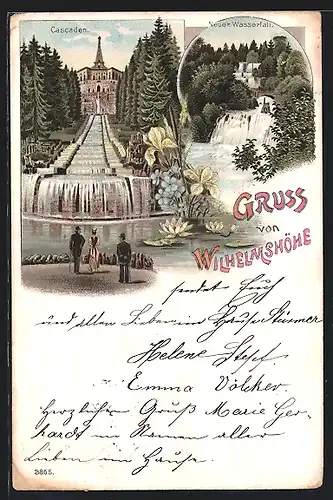 Cascaden.
Neuer Wasserfall.
GRUSS
von
WILHELMSHÖHE
sendet Euch
und allen Lieben im Hause Stürmer
Helene
Emma Völcker.
Herzlichen Gruß Marie Ger-
hardt im Namen aller
Lieben im Hause.
3865.